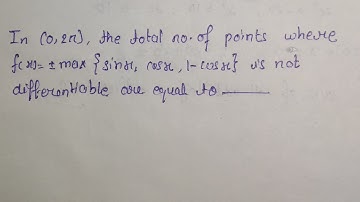 In (0, 2π), the total no. of points where
f(x) = ± max {sinx, cosx, 1-cosx} is not
differentiable are equal to ______